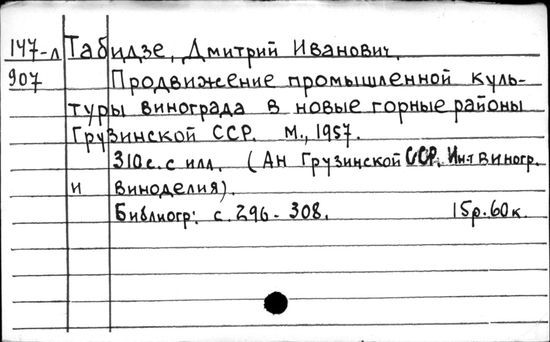 147-л Табидзе, Дмитрий Иванович.
907 Продвижение промышленной куль-
туры винограда в новые горные районы
Грузинской ССР. М., 1957.
310 с. с илл. (Ан Грузинской ССР. Ин-т виногр.
и виноделия).
Библиогр: с. 296-308. 15р.60к.